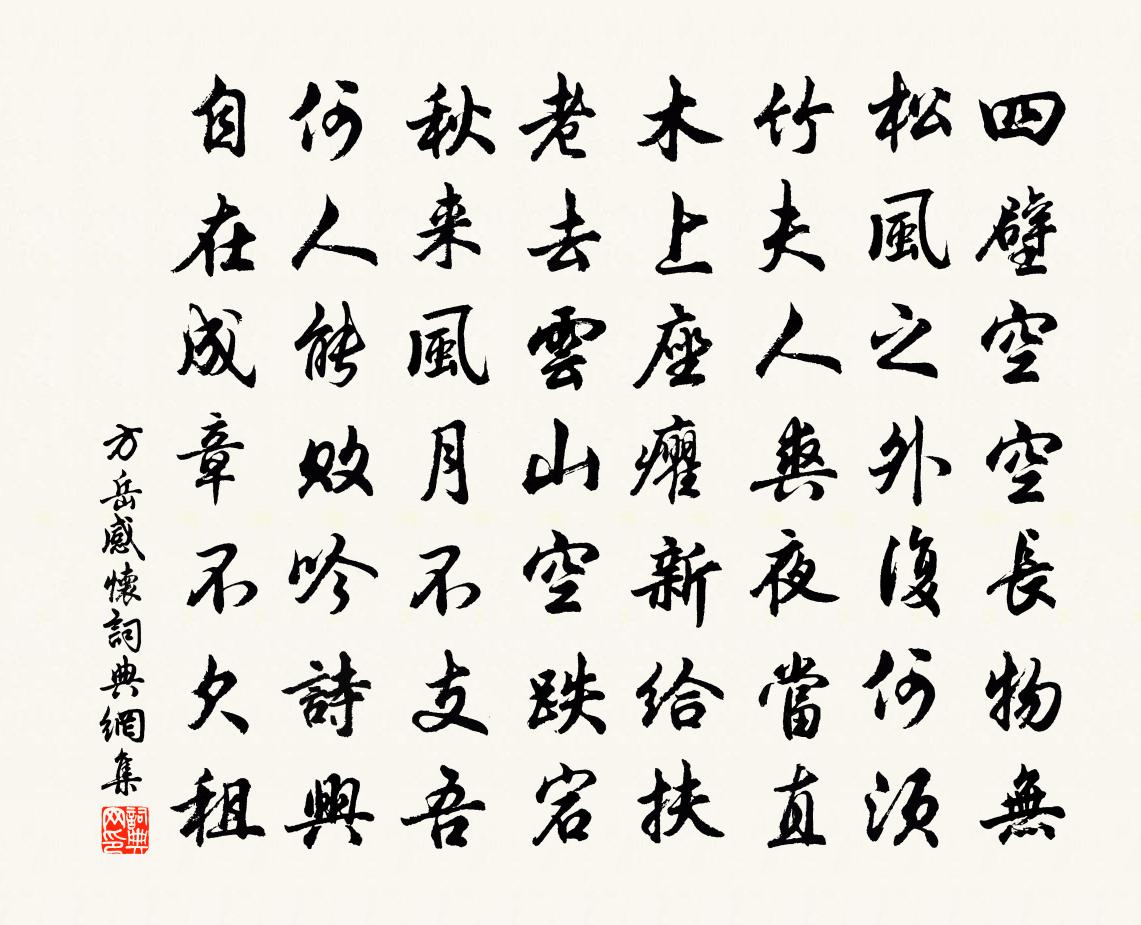 四壁空空長物無
松風之外復何須
竹夫人爽夜當直
木上座癯新給扶
老去雲山空跌宕
秋来風月不支吾
何人能敗吟詩興
自在成章不欠租
方岳感懷詞典網集
詞典网印